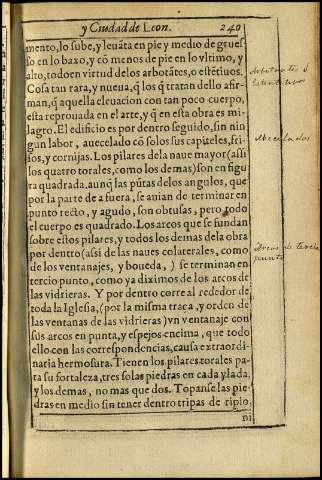 y Ciudad de Leon. 240
mento, lo sube, y leuãta en pie y medio de grues
so en lo baxo, y cõ menos de pie en lo vltimo, y
alto, todo en virtud delos arbotãtes, o estẽtiuos.
Cosa tan rara, y nueua, q̃ los q̃ tratan dello afir-
man, q̃ aquella eleuacion con tan poco cuerpo,
esta reprouada en el arte, y q̃ en esta obra es mi-
lagro. El edificio es por dentro seguido, sin nin
gun labor, auecelado cõ solos sus capiteles, fri-
sos, y cornijas. Los pilares dela naue mayor (assi
los quatro torales, como los demas) son en figu
ra quadrada, aunq̃ las pũtas delos angulos, que
por la parte de afuera, se auian de terminar en
punto recto, y agudo, son obtusas, pero todo
el cuerpo es quadrado. Los arcos que se fundan
sobre estos pilares, y todos los demas dela obra
por dentro (assi de las naues colaterales, como
de los ventanajes, y boueda,) se terminan en
tercio punto, como ya diximos de los arcos de
las vidrieras. Y por dentro corre al rededor de
toda la Iglesia, (por la misma traça, y orden de
las ventanas de las vidrieras) vn ventanaje con
sus arcos en punta, y espejos encima, que todo
ello con las correspondencias, causa extraordi-
naria hermosura. Tienen los pilares torales pa-
ta su fortaleza, tres solas piedras en cada ylada,
y los demas, no mas que dos. Topanse las pie-
dras en medio sin tener dentro tripas de ripio,
ni
Arbotantes ó
Estentivos
Avecelados
Arcos de tercio
punto